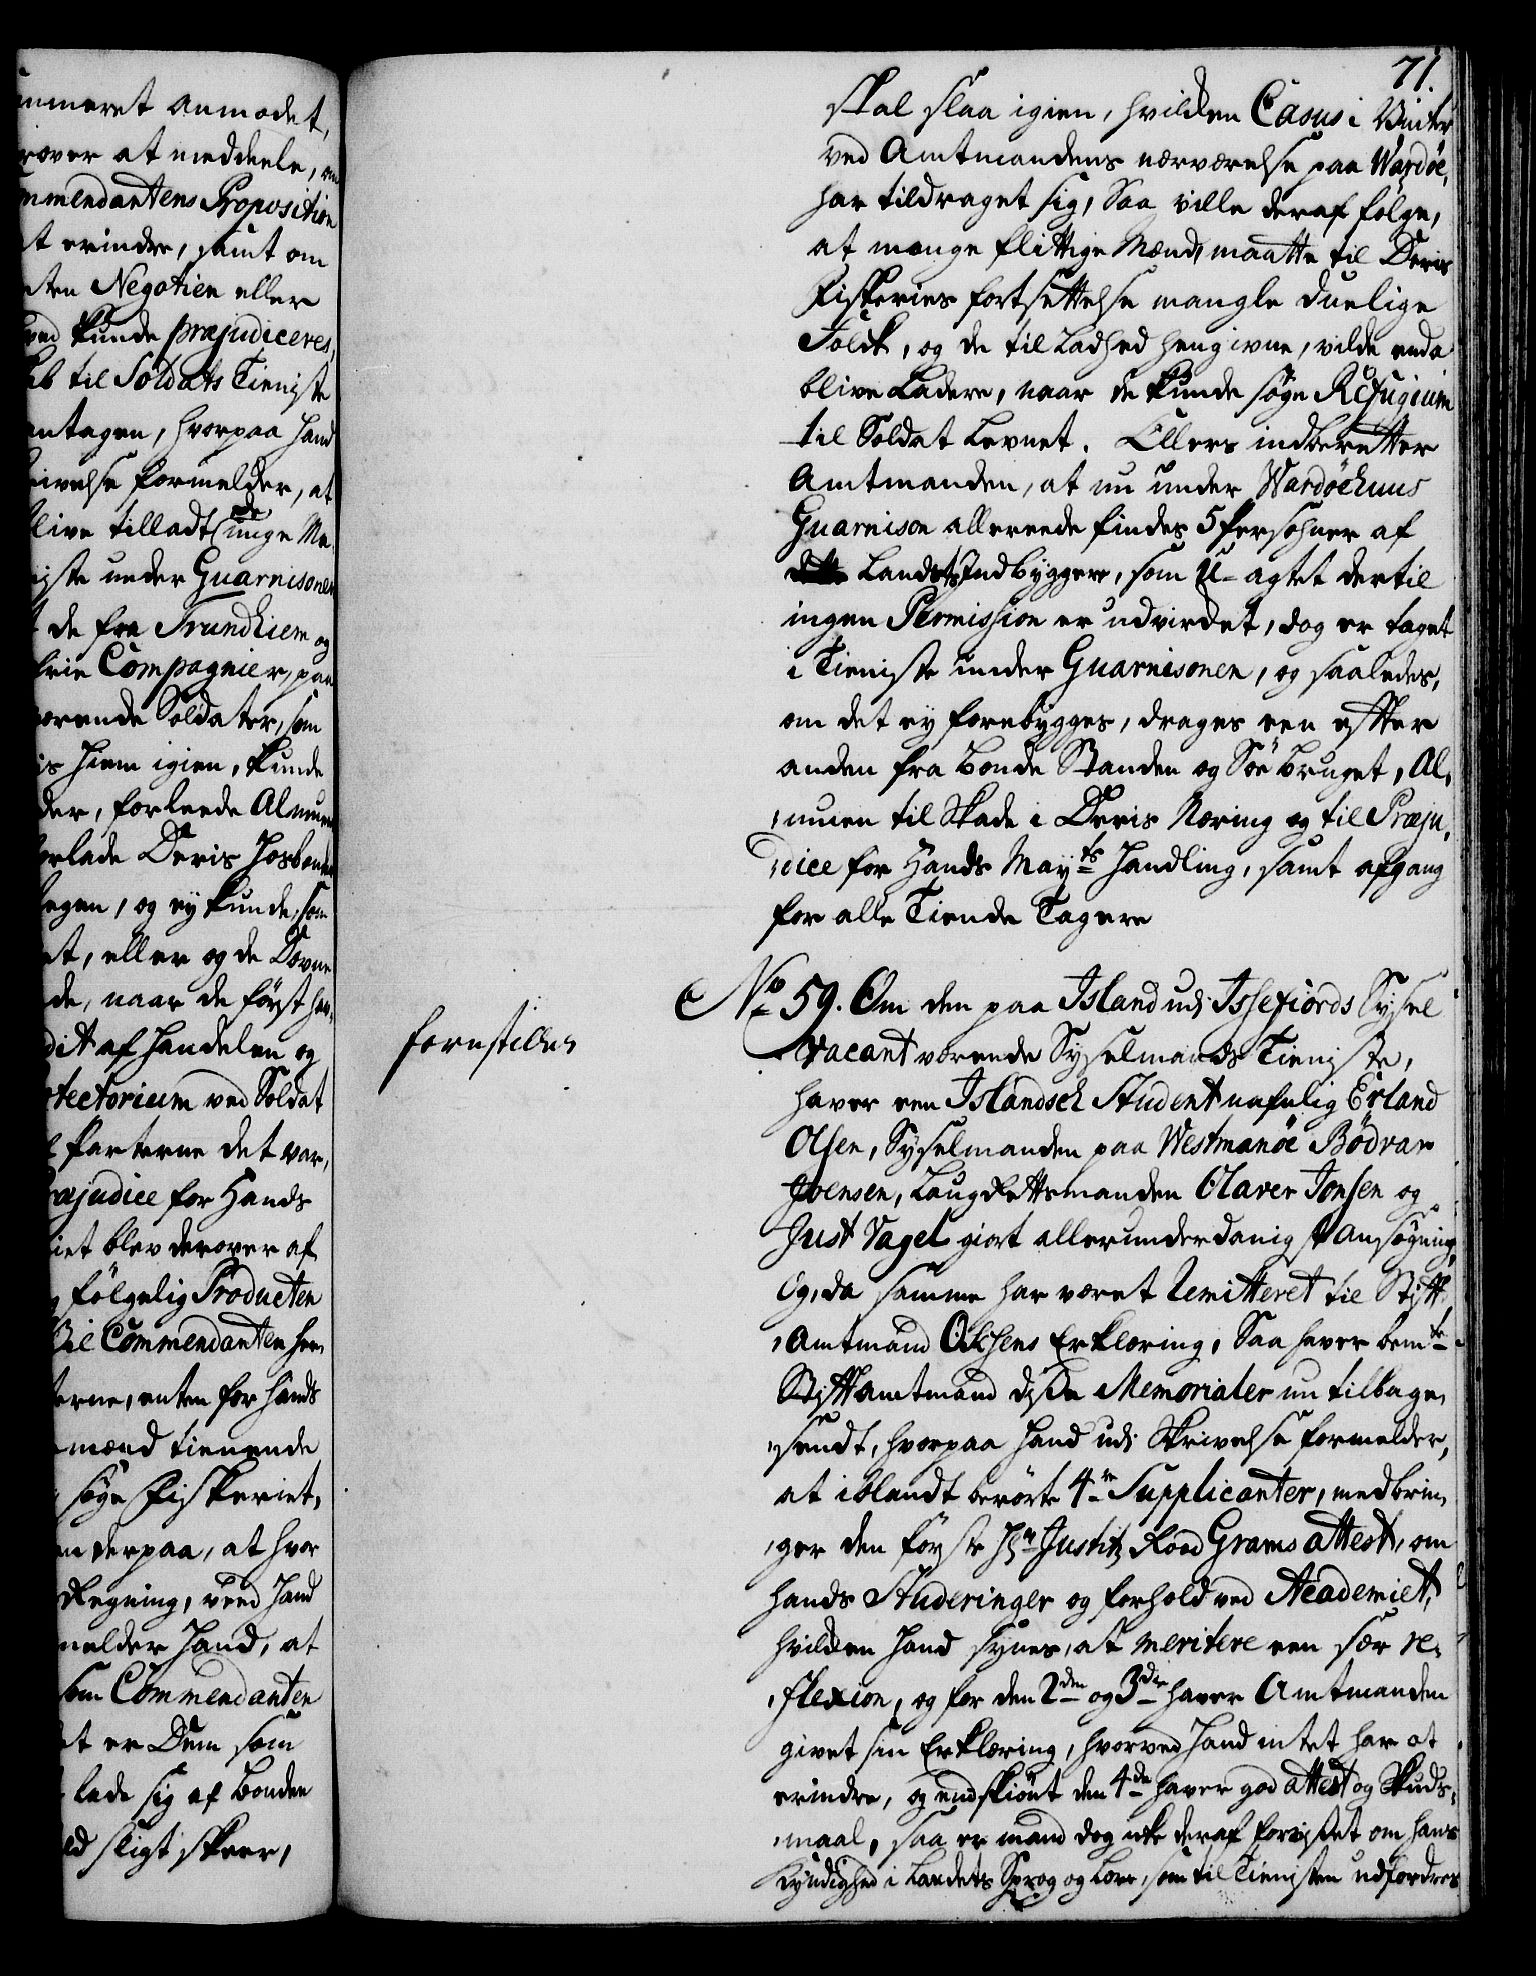 nmeret anmodet,
rover at meddeele, om
mmendantens Proposition
t erindre, samt om
sten Negotien eller
ved kunde præjudiceres,
ab til Soldats Tieniste
antagen, hvorpaa hand
ivelse formelder, at
live tilladt de unge Ma
iste under Guarnisonen
t de fra Trundhiem og
frie Compagnier, paa
ærende Soldater, som
is hiem igien, kunde
der, forleede Almuen
orlade Deris Hosbonde
egen, og ey kunde, som
et, eller og de Dovne
de, naar de først har
dit af handelen og
otectorium ved Soldat
parterne det var,
ræjudice for Hands
iet blev derover af,
følgelig Producten
til Commendanten her
terne, enten for hands
mænd tienende
søge Fiskeriet,
en derpaa, at hvor
Regning, veed hand
melder hand, at
som Commendanten
et er Dem som
lade sig af Bonden
ld sligt skeer,
71.
skal slaa igien, hvilken Casus i Vinter
ved Amtmandens nærværelse paa Wardøe,
har tildraget sig, Saa ville deraf følge,
at mange flittige Mænd, maatte til Deris
Fiskeries fortsettelse mangle duelige
Folck, og de til Ladhed hengivne, vilde enda
blive Ladere, naar de kunde søge Refugium
til Soldat Levnet. Ellers indberetter
Amtmanden, at nu under Wardøehuus
Guarnison allereede findes 5 Persohner af
Landets Indbyggere, som U-agtet dertil
ingen Permission er udvirdet, dog er taget
i Tieniste under Guarnisonen, og saaledes,
om det ey forebygges, drages een efter
anden fra Bonde Standen og Søe Bruget, Al,
,muen til Skade i Deris Næring og til Præju,
,dice for Hands Mayts Handling, samt afgang
for alle Tiende Tagere
forestilles
No 59. Om den paa Island udi Issefiords Sysel
vacant værende Syselmands Tieniste,
haver een Islandsch Student nafnlig Erland
Olsen, Syselmanden paa Westmanøe Bødvar
Joensen, Laugrettsmanden Olaver Jonsen og
Just Vagel giort allerunderdanigst Ansøgning,
Og, da samme har været Remitteret til Stift,
,Amtmand Ochsens Erklæring, Saa haver bemte
Stiftamtmand disse Memorialer nu tilbage,
,sendt, hvorpaa hand udi Skrivelse formelder,
at iblandt berørte 4re Supplicanter, medbrin,
,ger den første Hr Justitz Raad Grams attest, om
hands Studeringer og forhold ved Academiet,
hvilken hand synes, at meritere een sær re,
,flexion, og for den 2den og 3die haver Amtmanden
givet sin Erklæring, hvorved hand intet har at
erindre, og endskiønt den 4de haver god attest og Skuds,
,maal, saa er mand dog icke deraf forvistet om hans
Kyndighed i Landets Sprog og Love, som til Tienisten udfordres